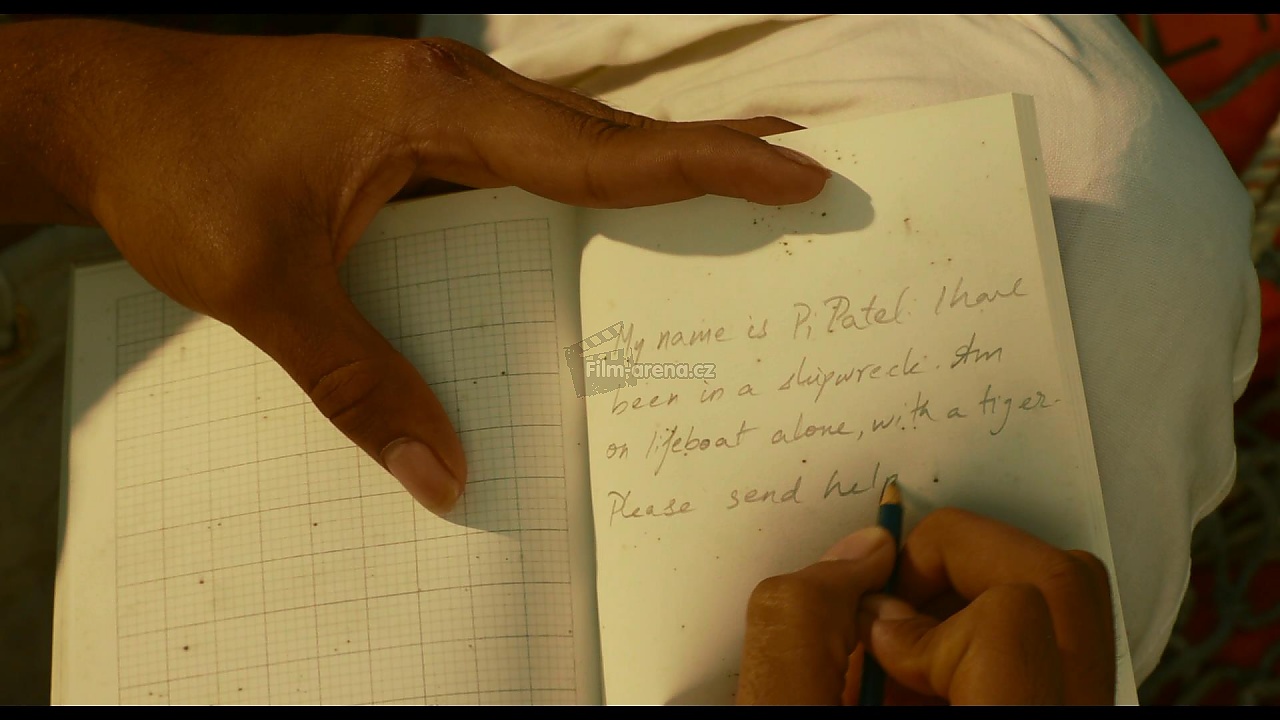 My name is Pi Patel. I have
been in a shipwreck. Am
on lifeboat alone, with a tiger.
Please send help
Film-arena.cz